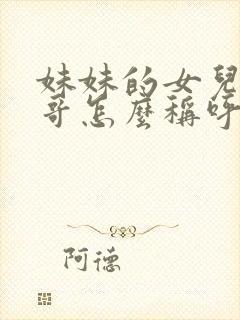 妹妹的女兒
哥怎麼稱呼
阿德